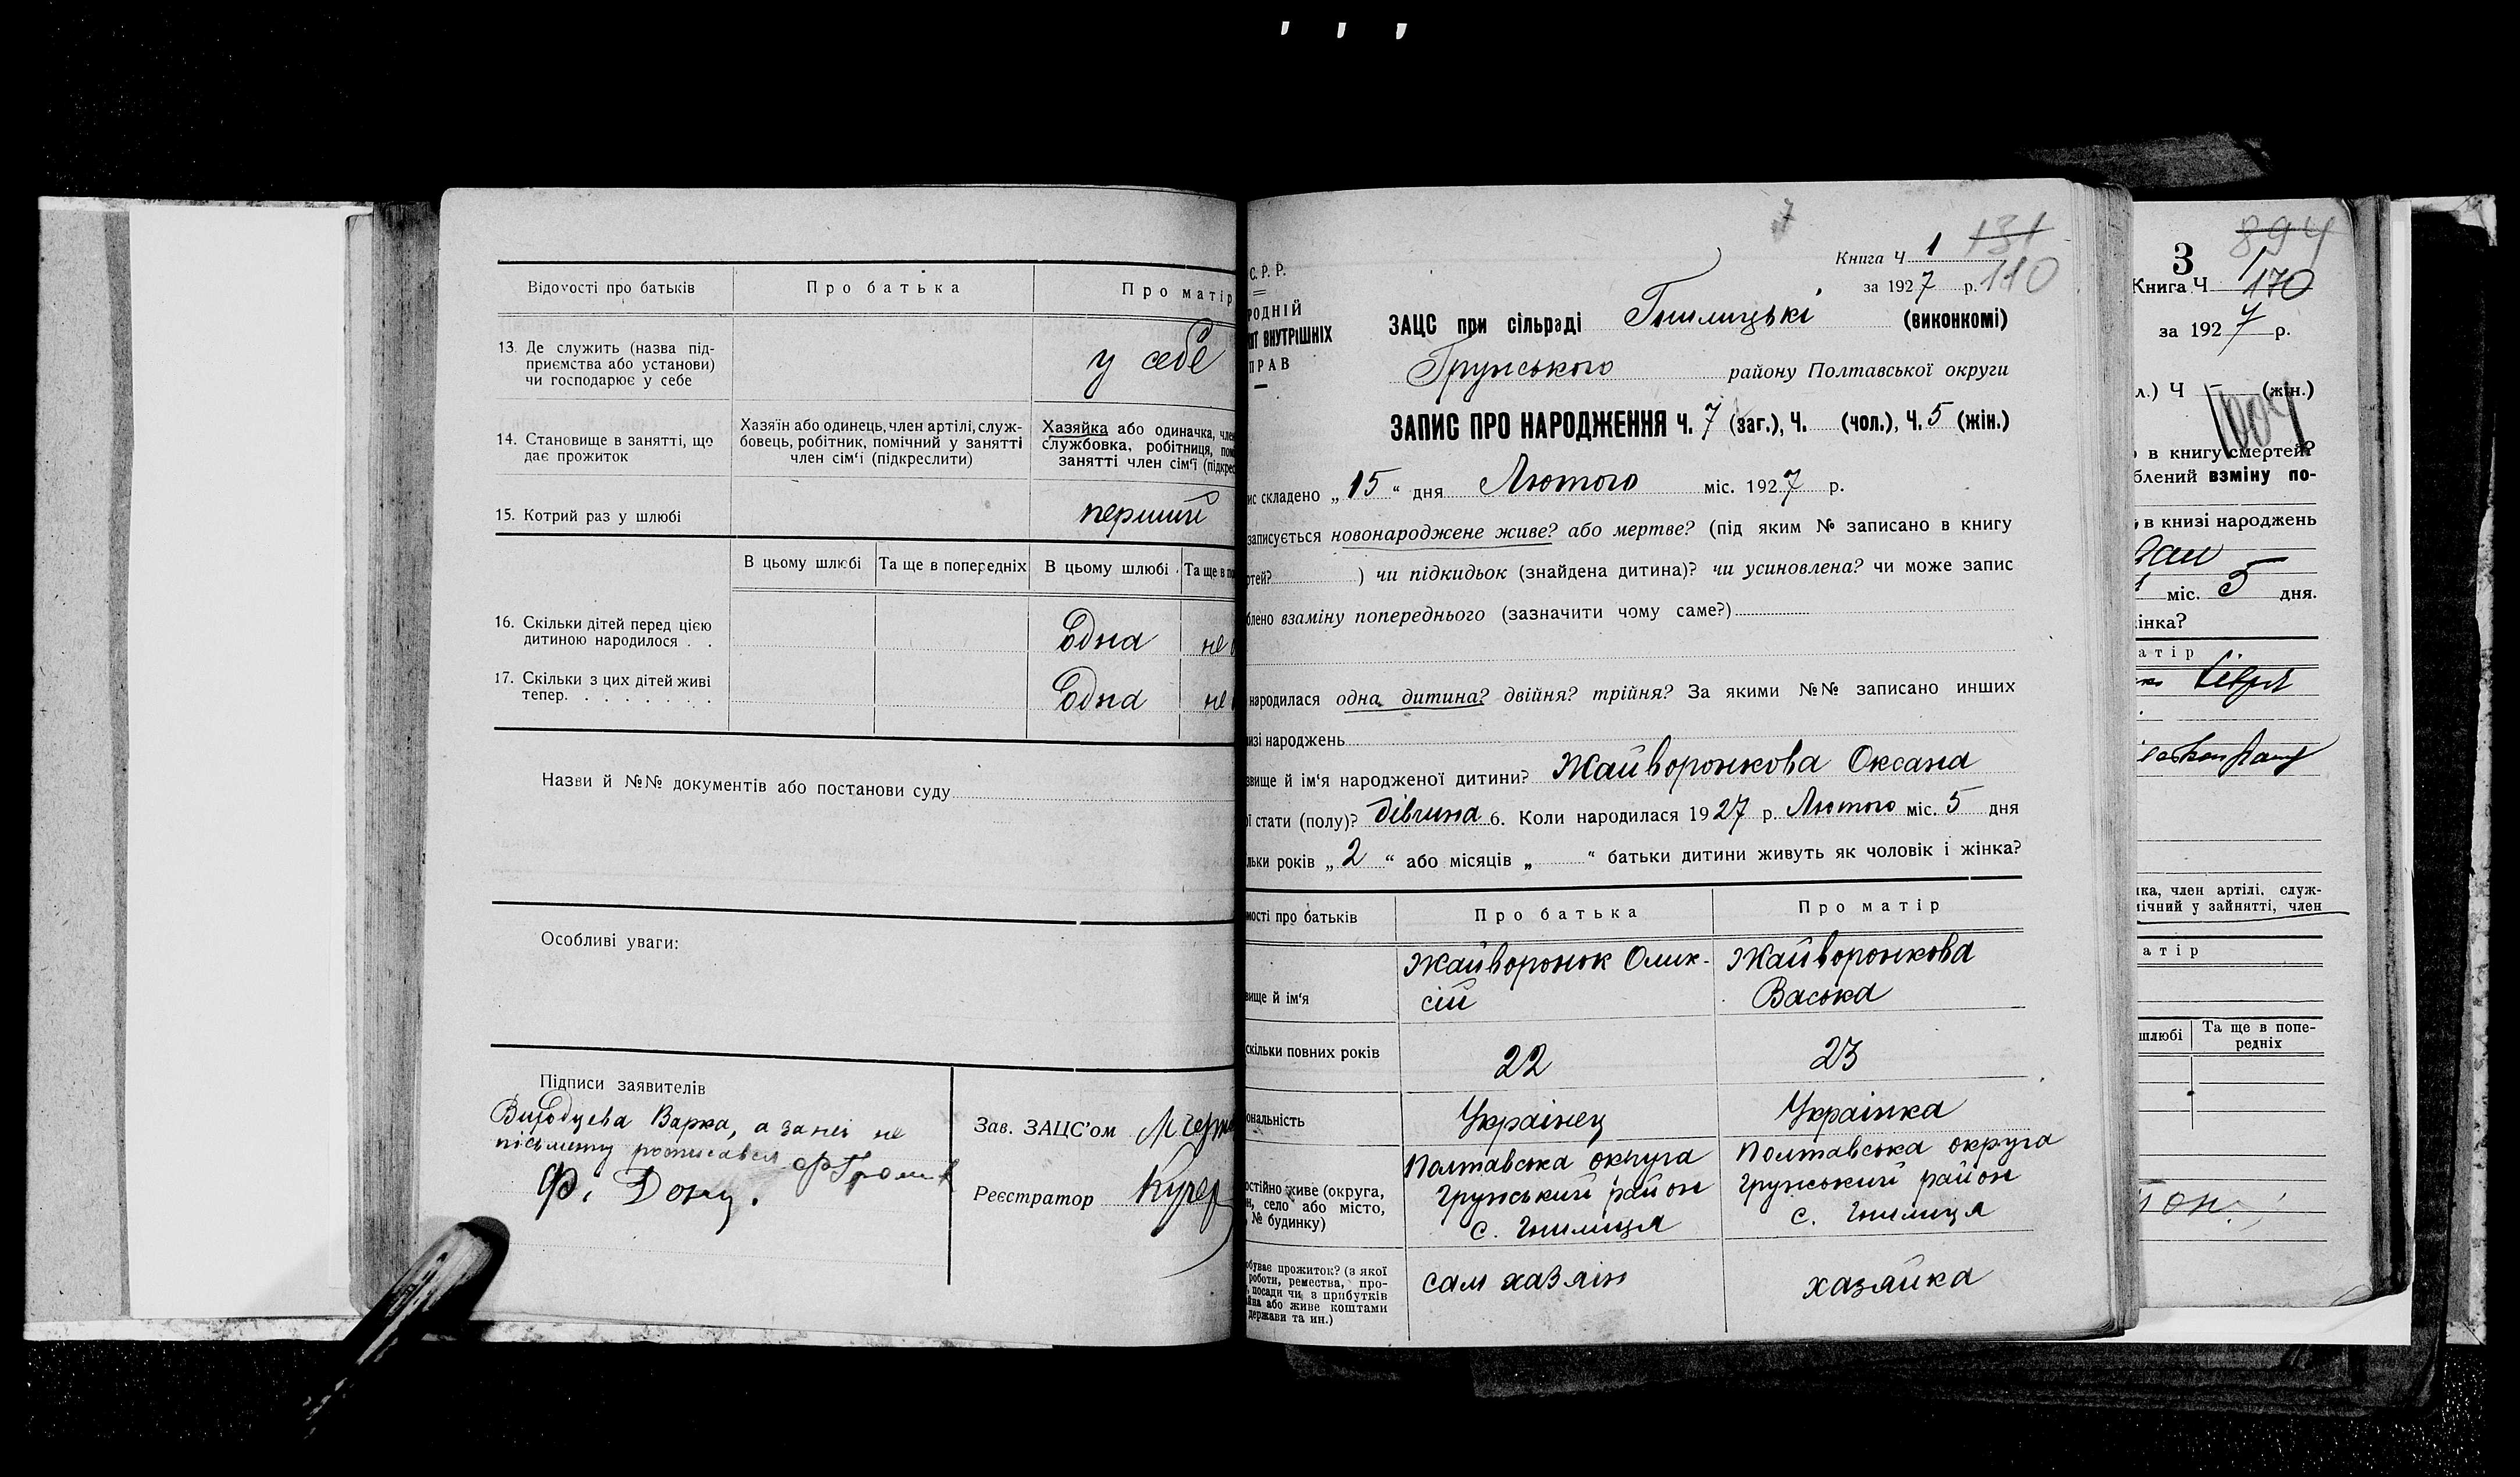 Відомості про батьків
Про батька
Про матір
13. Де служить (назва під-
приємства або установи)
чи господарює у себе
у себе
14. Становище в занятті, що
дає прожиток
Хазяїн або одинець, член артілі, служ-
бовець, робітник, помічний у занятті
член сім'ї (підкреслити)
Хазяйка або одиначка, член
службовка, робітниця,
занятті член сім'ї
15. Котрий раз у шлюбі
перший
В цьому шлюбі
Та ще в попередніх
В цьому шлюбі
Та ще в
16. Скільки дітей перед цією
дитиною народилося . .
Одна
17. Скільки з цих дітей живі
тепер. . . . . . . .
Одна
Назви й №№ документів або постанови суду
Особливі уваги:
Підписи заявителів
Варка, а за неї не
письменну росписався
Ф. Донц.
Зав. ЗАЦС'ом
Реєстратор Кучер
С.Р.Р.
РОДНІЙ
ВНУТРІШНІХ
ПРАВ
7
Книга Ч 1 131
за 1927 р. 110
ЗАЦС при сільраді Гнилицькі (виконкомі)
Грунського району Полтавської округи
ЗАПИС ПРО НАРОДЖЕННЯ Ч. 7 (заг.), Ч. (чол.), Ч. 5 (жін.)
ис складено „15“ дня Лютого міс. 1927 р.
записується новонароджене живе? або мертве? (під яким № записано в книгу
ртей? ) чи підкидьок (знайдена дитина)? чи усиновлена? чи може запис
блено взаміну попереднього (зазначити чому саме?)
народилася одна дитина? двійня? трійня? За якими №№ записано инших
изі народжень
звище й ім'я народженої дитини? Жайворонкова Оксана
ої стати (полу)? дівчина 6. Коли народилася 1927 р. Лютого міс. 5 дня
льки років „2“ або місяців „ “ батьки дитини живуть як чоловік і жінка?
мості про батьків
Про батька
Про матір
вище й ім'я
Жайворонок Олик-
сій
Жайворонкова
Васька
скільки повних років
22
23
ональність
Українец
Українка
остійно живе (округа,
н, село або місто,
№ будинку)
Полтавська округа
Грунський район
с. Гнилиця
Полтавська округа
Грунський район
с. Гнилиця
обуває прожиток? (з якої
роботи, ремества, про-
, посади чи з прибутків
айна або живе коштами
держави та ин.)
сам хазяін
хазяйка
3 894
Книга Ч 1 170
за 1927 р.
л.) Ч (жін.)
в книгу смертей?
блений взміну по-
в книзі народжень
міс. 5 дня.
інка?
атір
ика, член артілі, служ-
мічний у зайнятті, член
атір
шлюбі
Та ще в попе-
редніх